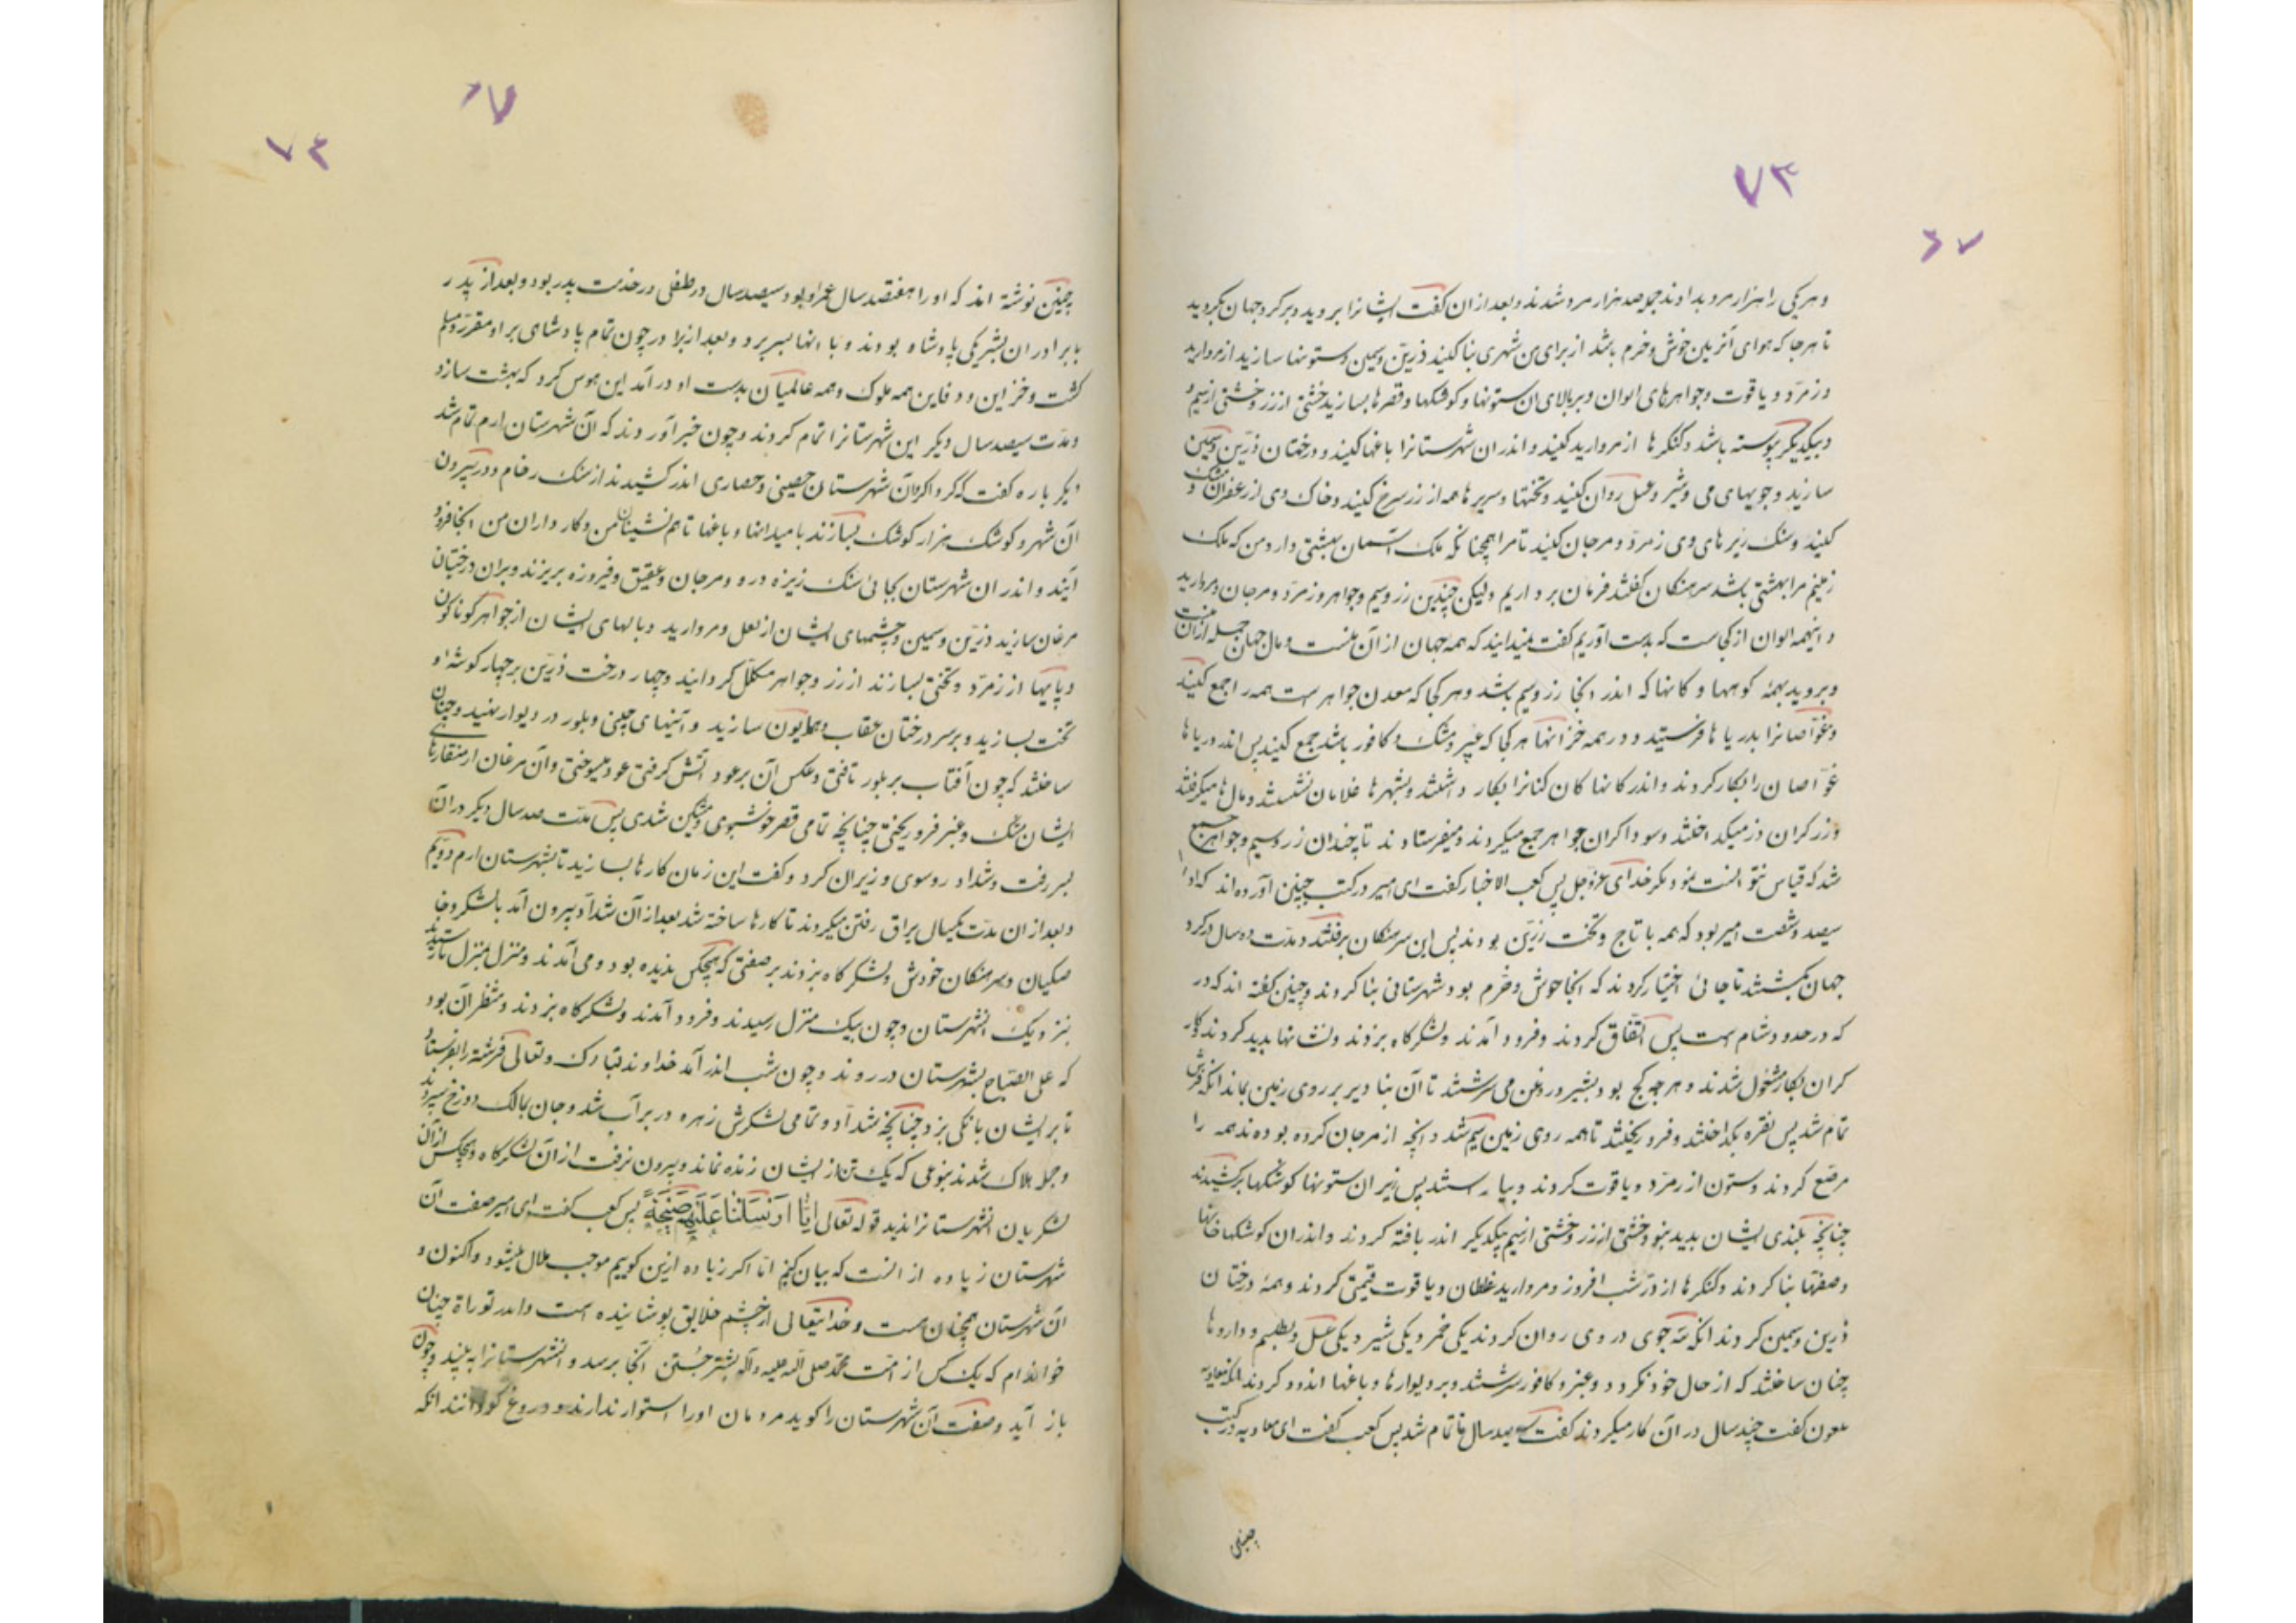 ۷۳
۶۷
و هر یکی را هزار مرد بداوند جمله صد هزار مرد شدند و بعد از ان کفت ایشانرا بروید و بر کرد جهان بکردید
تا هر جا که هوای آنزمین خوش و خرم باشد از برای من شهری بنا کنید ذرین و سیمین و ستونها سازید از مروارید
و زمرّد و یاقوت و جواهرهای الوان و بر بالای ان ستونها و کوشکها و قصرها بسازید خشتی از زر و خشتی از سیم و
و بیکدیکر پیوسته باشد و کنکرها از مروارید کنید و اندر ان شهرستانرا باغها کنید و درختان ذرّین و سیمین
سازید و جویهای می و شیر و عسل روان کنید و تختها و سریرها همه از زر سرخ کنید و خاک وی از زعفران و مشک
کنید و سنک ریزهای وی زمرّد و مرجان کنید تا مرا همچنانکه ملک آسمان بهشتی دارد من که ملک
زمینم مرا بهشتی باشد سرهنکان کفتند فرمان بر داریم ولیکن چندین زر و سیم و جواهر و زمرّد و مرجان و مروارید
و اینهمه الوان از کجاست که بدست آوریم کفت نمیدانید که همه جهان از آن منست و مال جهان جمله از آن منست
و بروید بهمهٔ کوهها و کانها که اندر انجا زر و سیم باشد و هر کجا که معدن جواهر است همه را جمع کنید
و غوّاصانرا بدریاها فرستید و در همه خزانها هر کجا که عنبر و مشک و کافور باشد جمع کنید پس اندر دریاها
غوّاصان را بکار کردند و اندر کانها کان کنانرا بکار داشتند و بشهرها غلامان نشستند و مال‌ها میکرفتند
و زرکران زر میکداختند و سوداکران جواهر جمع میکردند و میفرستادند تا چندان زر و سیم و جواهر جمع
شد که قیاس نتوانست نمود مکر خدای عزّ و جل پس کعب الاخبار کفت ای امیر در کتب چنین آورده‌اند که او را
سیصد و شصت امیر بود که همه با تاج و تخت زرّین بودند پس این سرهنکان برفتند و مدّت ده سال در کرد
جهان بکشتند تا جائی اختیار کردند که انجا خوش و خرّم بود و شهرستانی بنا کردند و چنین کفته اند که در
که در حدود شام است پس اتّفاق کردند و فرود آمدند و لشکرکاه بزدند و نشانها پدید کردند
کران بکار مشغول شدند و هر چه کج بود بشیر و روغن می سرشتند تا آن بنا دیر بر روی زمین بماند آنکه فرش
تمام شد پس نقره بکداختند و فرو ریختند تا همه روی زمین سیم شد و انچه از مرجان کرده بودند همه را
مرصّع کردند و ستون از زمرّد و یاقوت کردند و بیاراستند پس زبر ان ستونها کوشکها برکشیدند
چنانچه بلندی ایشان پدید نبود خشتی از زر و خشتی از سیم بیکدیکر اندر بافته کردند و اندر ان کوشکها خانها
و صفّها بنا کردند و کنکرها از درّ شب افروز و مروارید غلطان و یاقوت قیمتی کردند و همهٔ درختان
ذرین و سیمین کردند آنکه سه جوی در وی روان کردند یکی خمر و یکی شیر و یکی عسل و بطلسم و داروها
چنان ساختند که از حال خود نکردد و عنبر و کافور سرشتند و بر دیوارها و باغها اندود کردند آنکه معاویه
ملعون کفت چند سال در آن کار میکردند کفت سیصد سال تا تمام شد پس کعب کفت ای معاویه در کتب
چنین
۶۷
۷۳
چنین نوشته اند که او را هفتصد سال عمر او بود سیصد سال در طفلی در خدمت پدر بود و بعد از پدر
با برادران بشریکی پادشاه بودند و با انها بسر برد و بعد از برادر چون تمام پادشای بر او مقرّر و مسلم
کشت و خزاین و دفاین همه ملوک و همه عالمیان بدست او در آمد این هوس کرد که بهشت سازد
و مدّت سیصد سال دیکر این شهرستانرا تمام کردند و چون خبر آوردند که آن شهرستان ارم تمام شد
دیکر باره کفت که کرداکرد آن شهرستان حصینی و حصاری اندر کشیدند از سنک رخام و در بیرون
آن شهر و کوشک هزار کوشک بسازند با میدانها و باغها تا هم نشینان من و کار داران من انجا فرود
آیند و اندر ان شهرستان بجائ سنک ریزه در و مرجان و عقیق و فیروزه بریزند و بران درختان
مرغان سازید ذرّین و سیمین و چشمهای ایشان از لعل و مروارید و بالهای ایشان از جواهر کوناکون
و پایها از زمرّد و تختی بسازند از زر و جواهر مکلّل کردانید و چهار درخت ذرّین بر چهار کوشه او
تخت بسازید و بر سر درختان عقاب و همایون سازید و آئینهای چینی و بلور در دیوار نهید و چنان
ساختند که چون آفتاب بر بلور تافتی و عکس آن بر عود آتش کرفتی عود میسوختی و آن مرغان از منقارهای
ایشان مشک و عنبر فرو ریختی چنانچه تمامی قصر خوشبوی و مشکین شدی پس مدّت صد سال دیکر در آن
بسر رفت و شداد روسوی وزیران کرد و کفت این زمان کارها بسازید تا بشهرستان ارم در ویم
و بعد از ان مدّت یکسال یراق رفتن میکردند تا کارها ساخته شد بعد از آن شدّاد بیرون آمد با لشکر و خا
صکیان و سرهنکان خودش و لشکرکاه بزدند بر صفتی که هیچکس ندیده بود و می آمدند و منزل منزل تا رسید
بنزدیک انشهرستان و چون بیک منزل رسیدند و فرود آمدند و لشکرکاه بزدند و منتظر آن بود
که علی الصّباح بشهرستان در روند و چون شب اندر آمد خداوند تبارک و تعالی فرشته را بفرستاد
تا بر ایشان بانکی بزد چنانچه شدّاد و تمامی لشکرش زهره در بر آب شد و جان بمالک دوزخ سپردند
و جمله هلاک شدند بنوعی که یک تن از ایشان زنده نماند و بیرون نرفت از آن لشکرکاه و هیچکس از آن
لشکریان انشهرستانرا ندید قوله تعالی اِنّا اَرْسَلْنا عَلَیْهِمْ صَیْحَةً پس کعب کفت ای امیر صفت آن
شهرستان زیاده از انست که بیان کنیم امّا اکر زیاده ازین کوییم موجب ملال میشود و اکنون و
آن شهرستان همچنان هست و خدایتعالی از چشم خلایق پوشانیده است و اندر توراة چنان
خوانده‌ام که یک کس از امّت محمّد صلی الله علیه و آله بشتر جُستن انجا برسد و انشهرستانرا به بیند و چون
باز آید و صفت آن شهرستان را کوید مردمان او را استوار ندارند و دروغ کو دانند آنکه